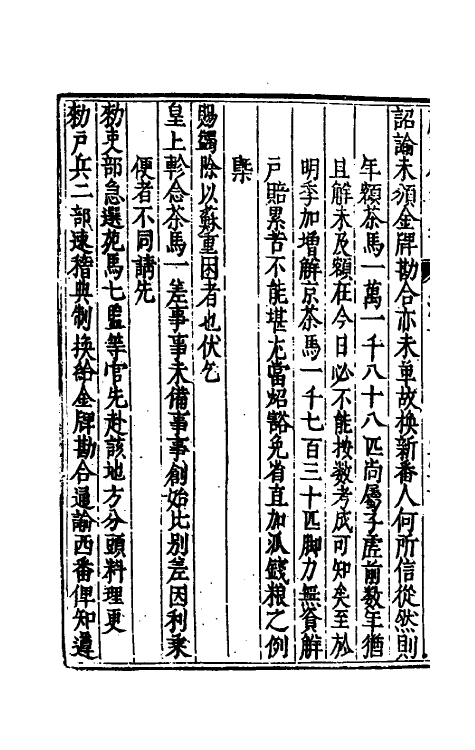 詔諭未頒金牌勘合亦未革故換新番人何所信從然則
年額茶馬一萬一千八十八匹尚屬子虛前數年猶
且解未及額在今日必不能按數考成可知矣至於
明季加增解京茶馬一千七百三十匹脚力無資解
戶賠累苦不能堪尤當炤豁免省直加派錢粮之例
槩
賜蠲除以蘇重困者也伏乞
皇上軫念茶馬一差事事未備事事創始比別差因利乘
便者不同請先
勑吏部急選苑馬七監等官先赴該地方分頭料理更
勑戶兵二部速稽典制換給金牌勘合通諭西番俾知遵